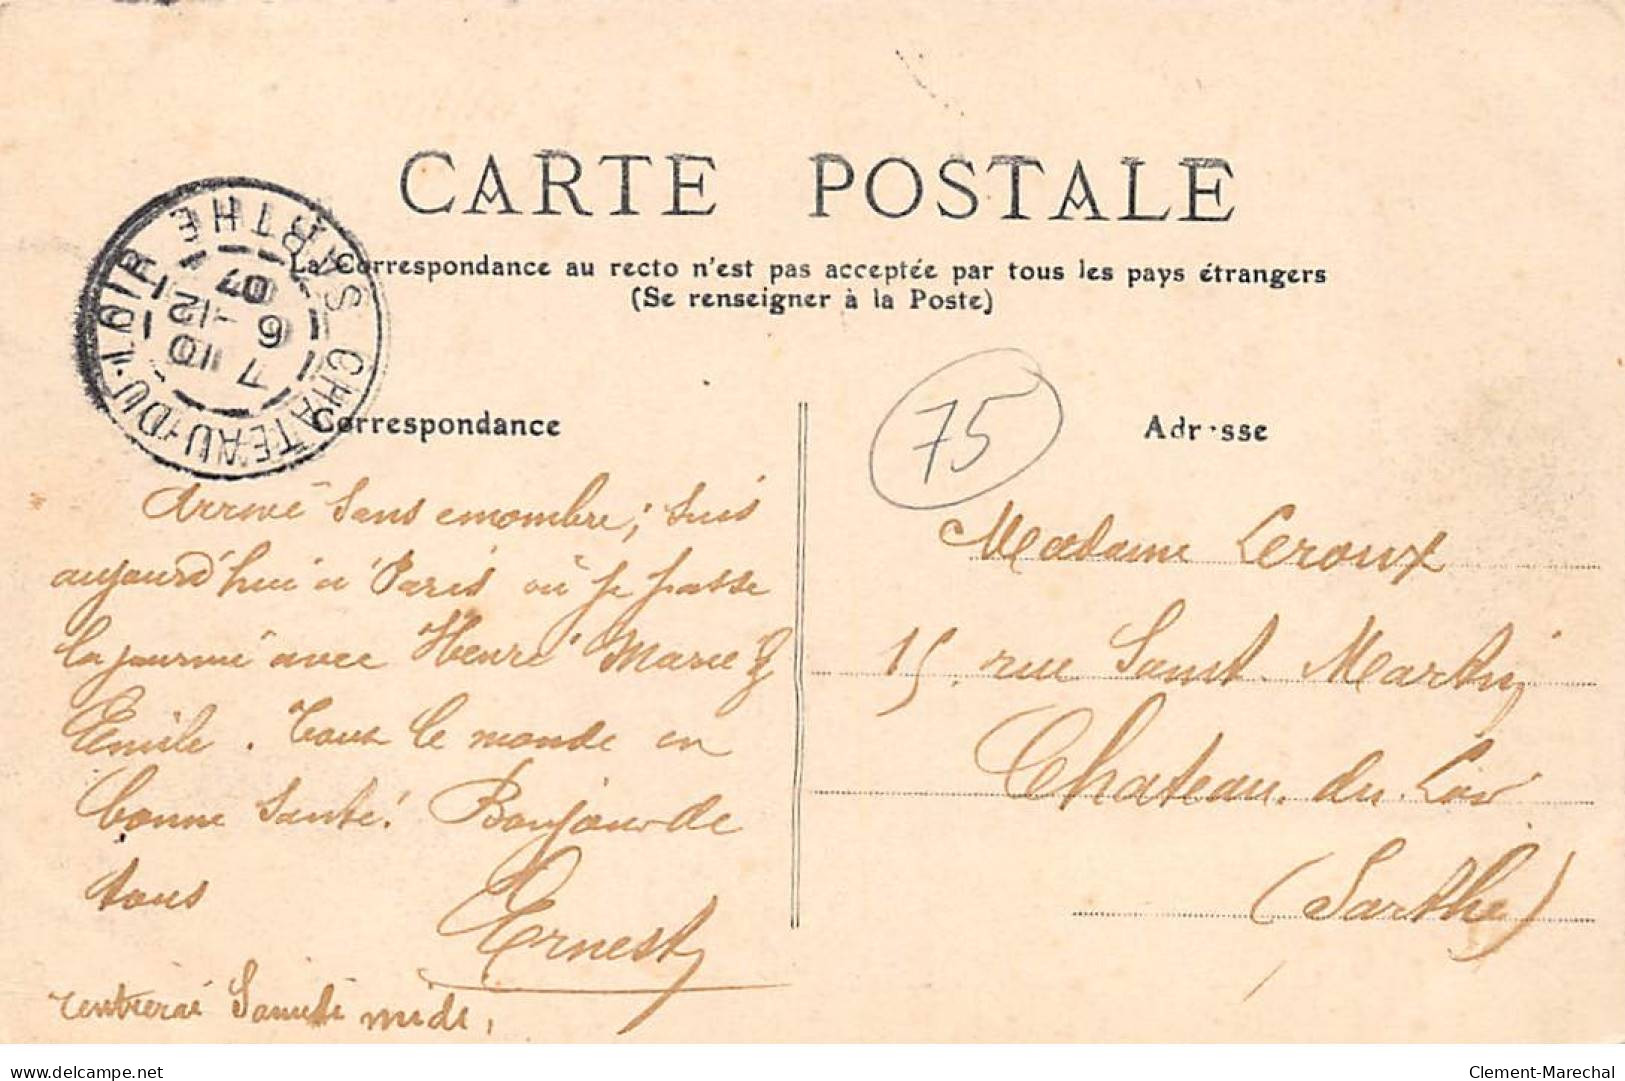 CARTE POSTALE
La Correspondance au recto n'est pas acceptée par tous les pays étrangers
(Se renseigner à la Poste)
CHATEAU-DU-LOIR SARTHE
7 10
6 -12
07
Correspondance
75
Adresse
Arrivé sans encombre; suis
aujourd'hui à Paris où je passe
la journée avec Henri Marie &
Emile. Tout le monde en
bonne santé. Bonjour de
tous
Ernest
rentrerai Samedi midi,
Madame Leroux
15, rue Saint-Martin
Chateau-du-Loir
(Sarthe)
delcampe.net
Clement-Marechal